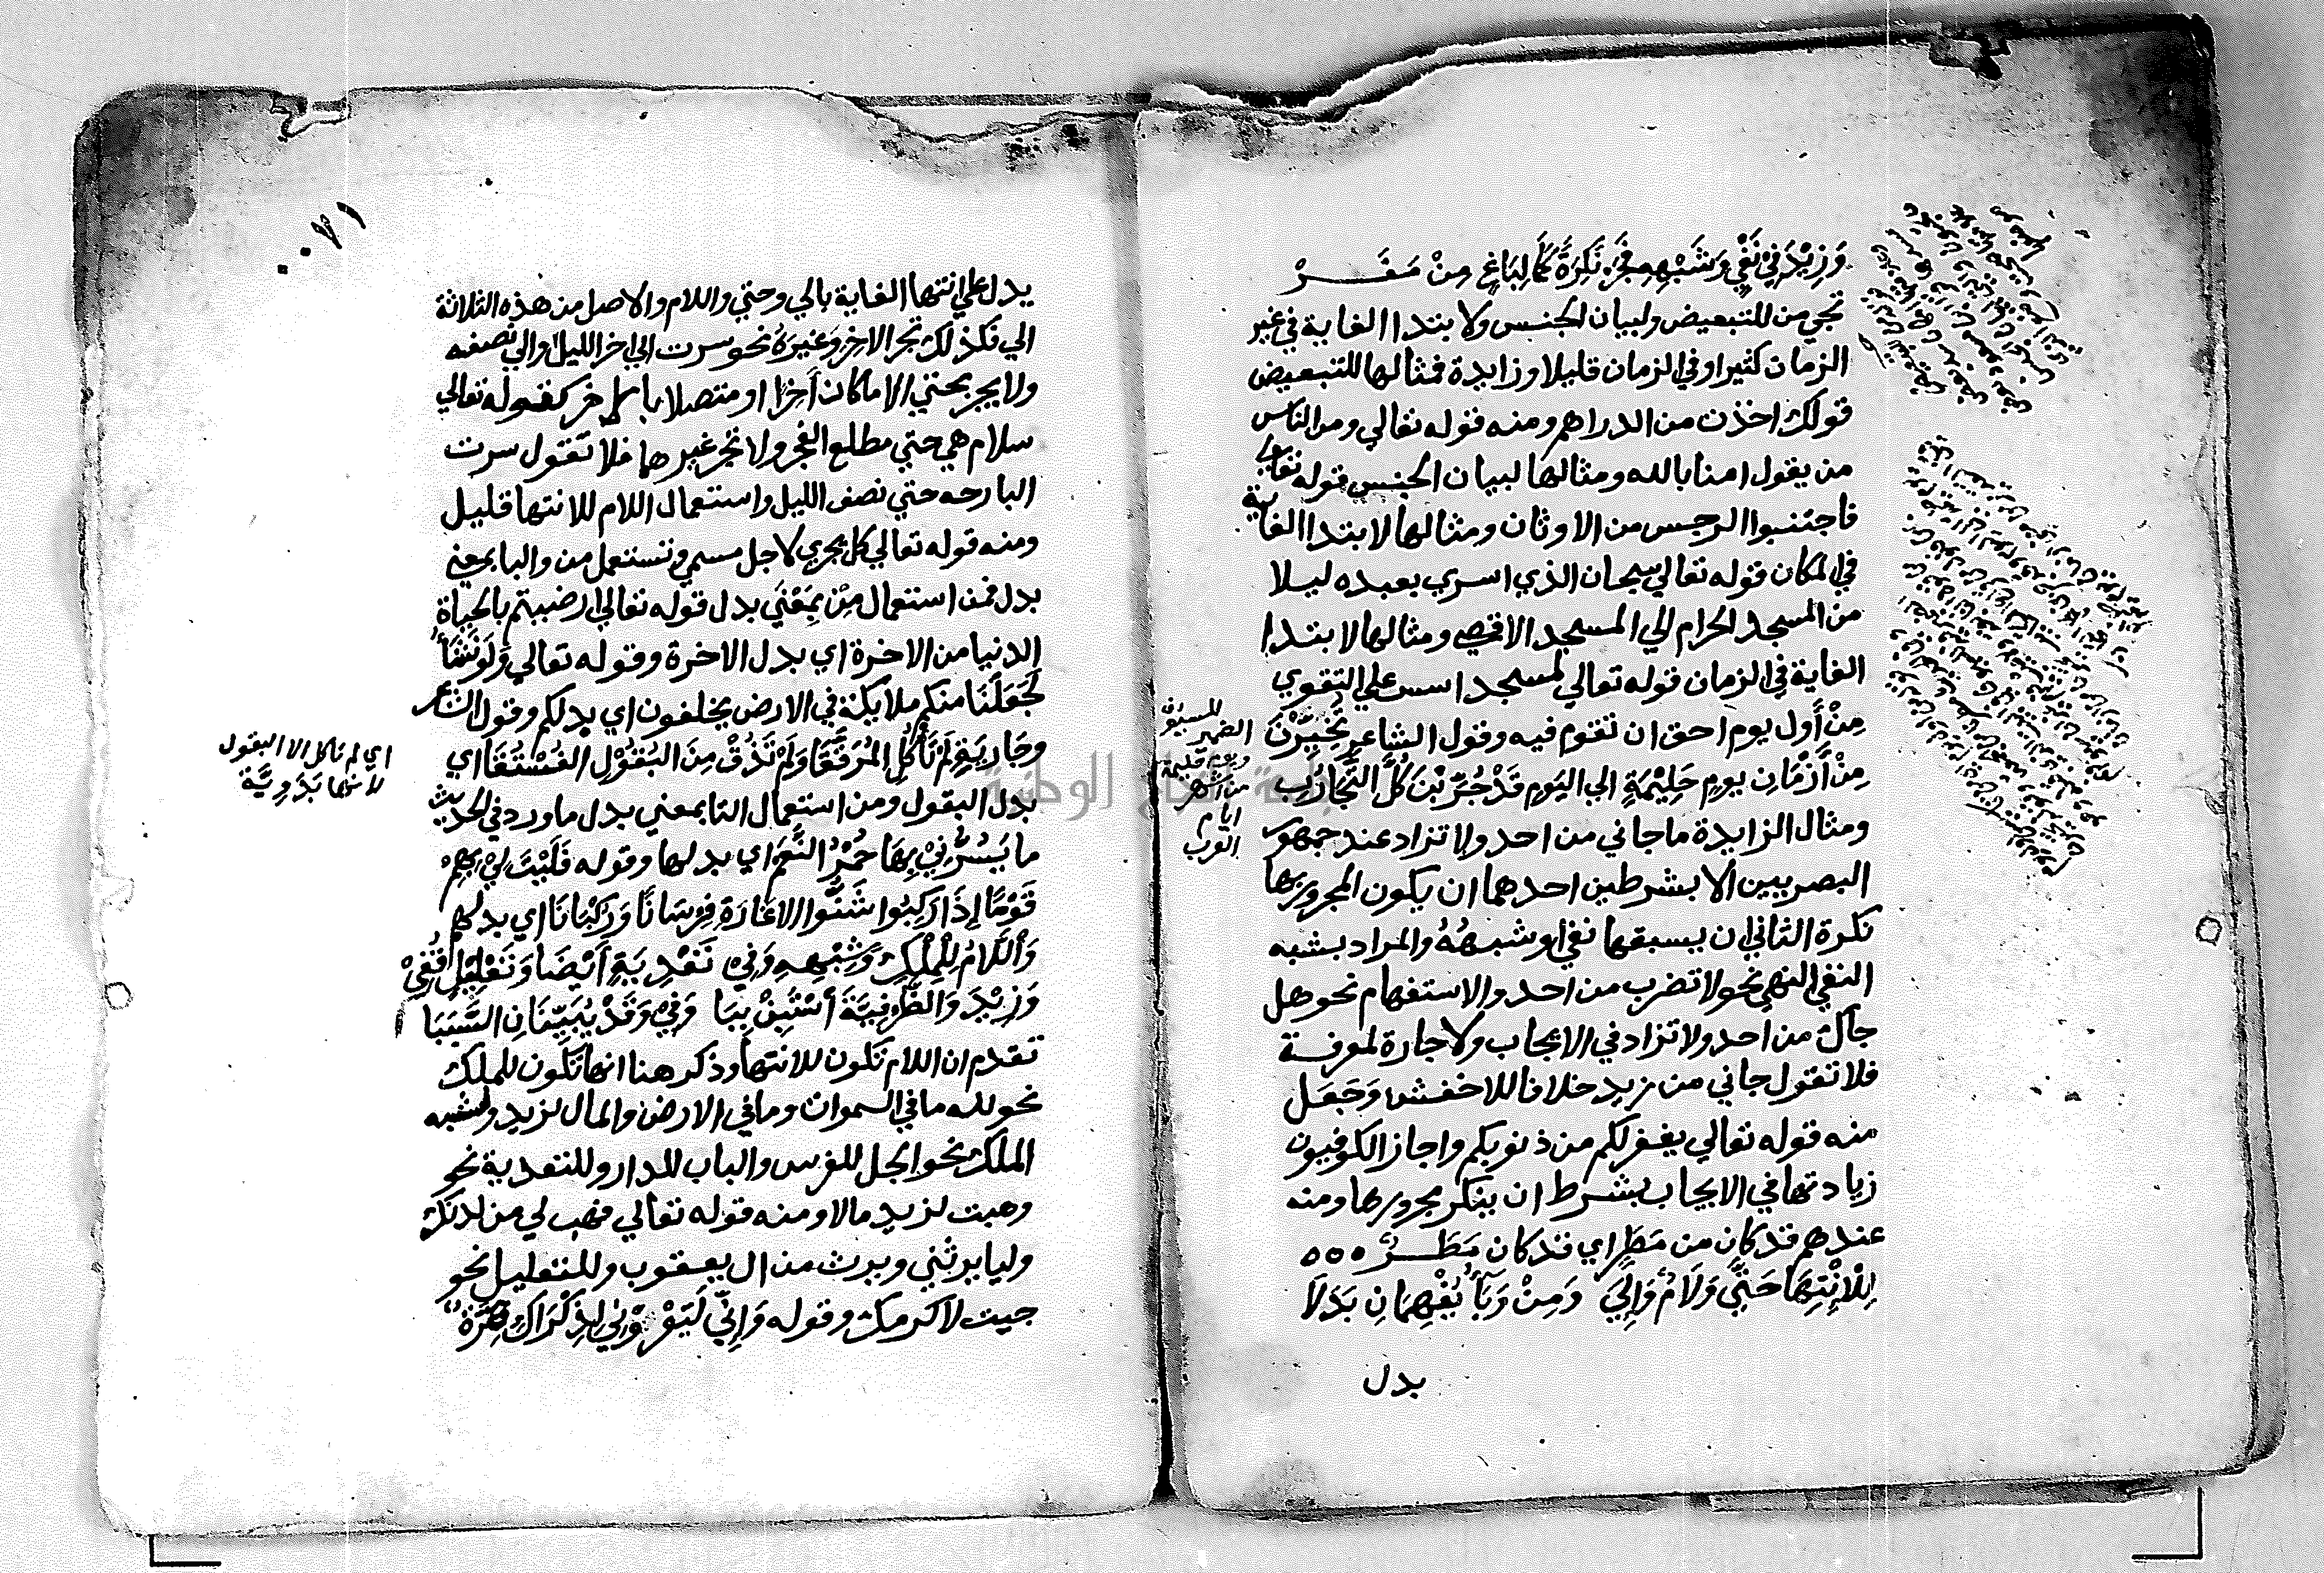 وَزِيْدَ فِي نَفْيٍ وَشَبْهِهِ فَجَرّ نَكِرَةً كَمَا لِبَاغٍ مِنْ مَفَـــرْ
تجي من للتبعيض ولبيان الجنس ولابتدا الغاية في غير
الزمان كثيرا وفي الزمان قليلا وزايدة فمثالها للتبعيض
قولك اخذت من الدراهم ومنه قوله تعالي ومن الناس
من يقول امنا بالله ومثالها لبيان الجنس قوله تعالي
فاجتنبوا الرجس من الاوثان ومثالها لابتدا الغاية
في المكان قوله تعالي سبحان الذي اسري بعبده ليلا
من المسجد الحرام الي المسجد الاقصي ومثالها لابتدا
الغاية في الزمان قوله تعالي لمسجد اسس علي التقوي
مِنْ أَول يوم احق ان تقوم فيه وقول الشاعر تُخِيِّرْنَ
مِنْ أَزْمَانِ يومِ حَلِيْمَةٍ الي اليَومِ قَدْ جُرِّبْنَ كُلَّ التَّجَارُبِ
ومثال الزايدة ما جاني من احد ولا تزاد عند جمهور
البصريين الا بشرطين احدهما ان يكون المجرور بها
نكرة الثاني ان يسبقها نفي او شبهُهُ والمراد بشبه
النفي النهي نحو لا تضرب من احد والاستفهام نحو هل
جاك من احد ولا تزاد في الايجاب ولا جارة لمعرفة
فلا تقول جاني من زيد خلافا للاخفش وَجَعَل
منه قوله تعالي يغفر لكم من ذنوبكم واجاز الكوفيون
زيادتها في الايجاب بشرط ان ينكر مجرورها ومنه
عندهم قد كان من مَطَرٍ اي قد كان مَطَــرٌ ٥٥٥
لِلْاِنْتِهَا حَتَّي وَلَامٌ وَإِلَي وَمِنْ وَبَاٌ يُفْهِمَانِ بَدَلَا
بدل
للمسبوق
الضمير
ويوم حليمة
من اشهر
ايام
العرب
٧١
يدل علي انتها الغاية بالي وحتي واللام والاصل من هذه الثلاثة
الي فكذلك تجر الاخر وَغيرَهُ نحو سرت الي اخر الليل او الي نصفه
ولا يجر بحتي الا ما كان أَخِرًا او متصلا بالاخر كقوله تعالي
سلام هي حتي مطلع الفجر ولا تجر غيرهما فلا تقول سرت
البارحه حتي نصف الليل واستعمال اللام للانتها قليل
ومنه قوله تعالي كل يجري لاجل مسمي وتستعمل من والبا بمعني
بدل فمن استعمال مِنْ بمَعْنَي بدل قوله تعالي ارضيتم بالحياة
الدنيا من الاخرة اي بدل الاخرة وقوله تعالي وَلَو نَشَآُ
لَجَعَلْنَا منكم ملايكة في الارض يخلفون اي بدلكم وقول الشاعر
وجَارِيَةٍ لَمْ تَأْكُلِ المُرَقَّقَا وَلَمْ تَذُقْ مِنَ البُقُوْلِ الفُسْتُقَا اي
بدل البقول ومن استعمال البا بمعني بدل ما ورد في الحديث
ما يَسُرُّنِيْ بِهَا حُمْرُ النَّعَمِ اي بدلها وقوله فَلَيْتَ لِيْ بِهِمْ
قَوْمًا إِذَا رَكِبُوا شَنُّوا الاغَارَةَ فِرْسَانًا وَرُكْبَانَا اي بدلهم
وَاْللَّامُ لِلْمِلْكِ وَشِبْهِهِ وَفِيْ تَعْدِيَةٍ أَيْضًا وَتَعْلِيْلٍ قُفِيْ
وَزِيْدَ وَالظَّرْفِيَّةَ أَسْتَبِنْ بِبَا وَفِيْ وَقَدْ يُبَيِّنَانِ السَّبَبَا
تقدم ان اللام تكون للانتها وذكر هنا انها تكون للملك
نحو لله ما في السموات وما في الارض والمال لزيد ولشبه
الملك نحو الجل للفرس والباب للدار وللتعدية نحو
وهبت لزيد مالا ومنه قوله تعالي فهب لي من لدنك
وليا يرثني ويرث من ال يعقوب وللتعليل نحو
جيت لاكرمك وقوله وَإِنِّي لَتَعْرُوْنِي لِذِكْرَاكِ هِزَّةٌ
اي لم تاكل الا البقول
لانها بَدَوِيَّة